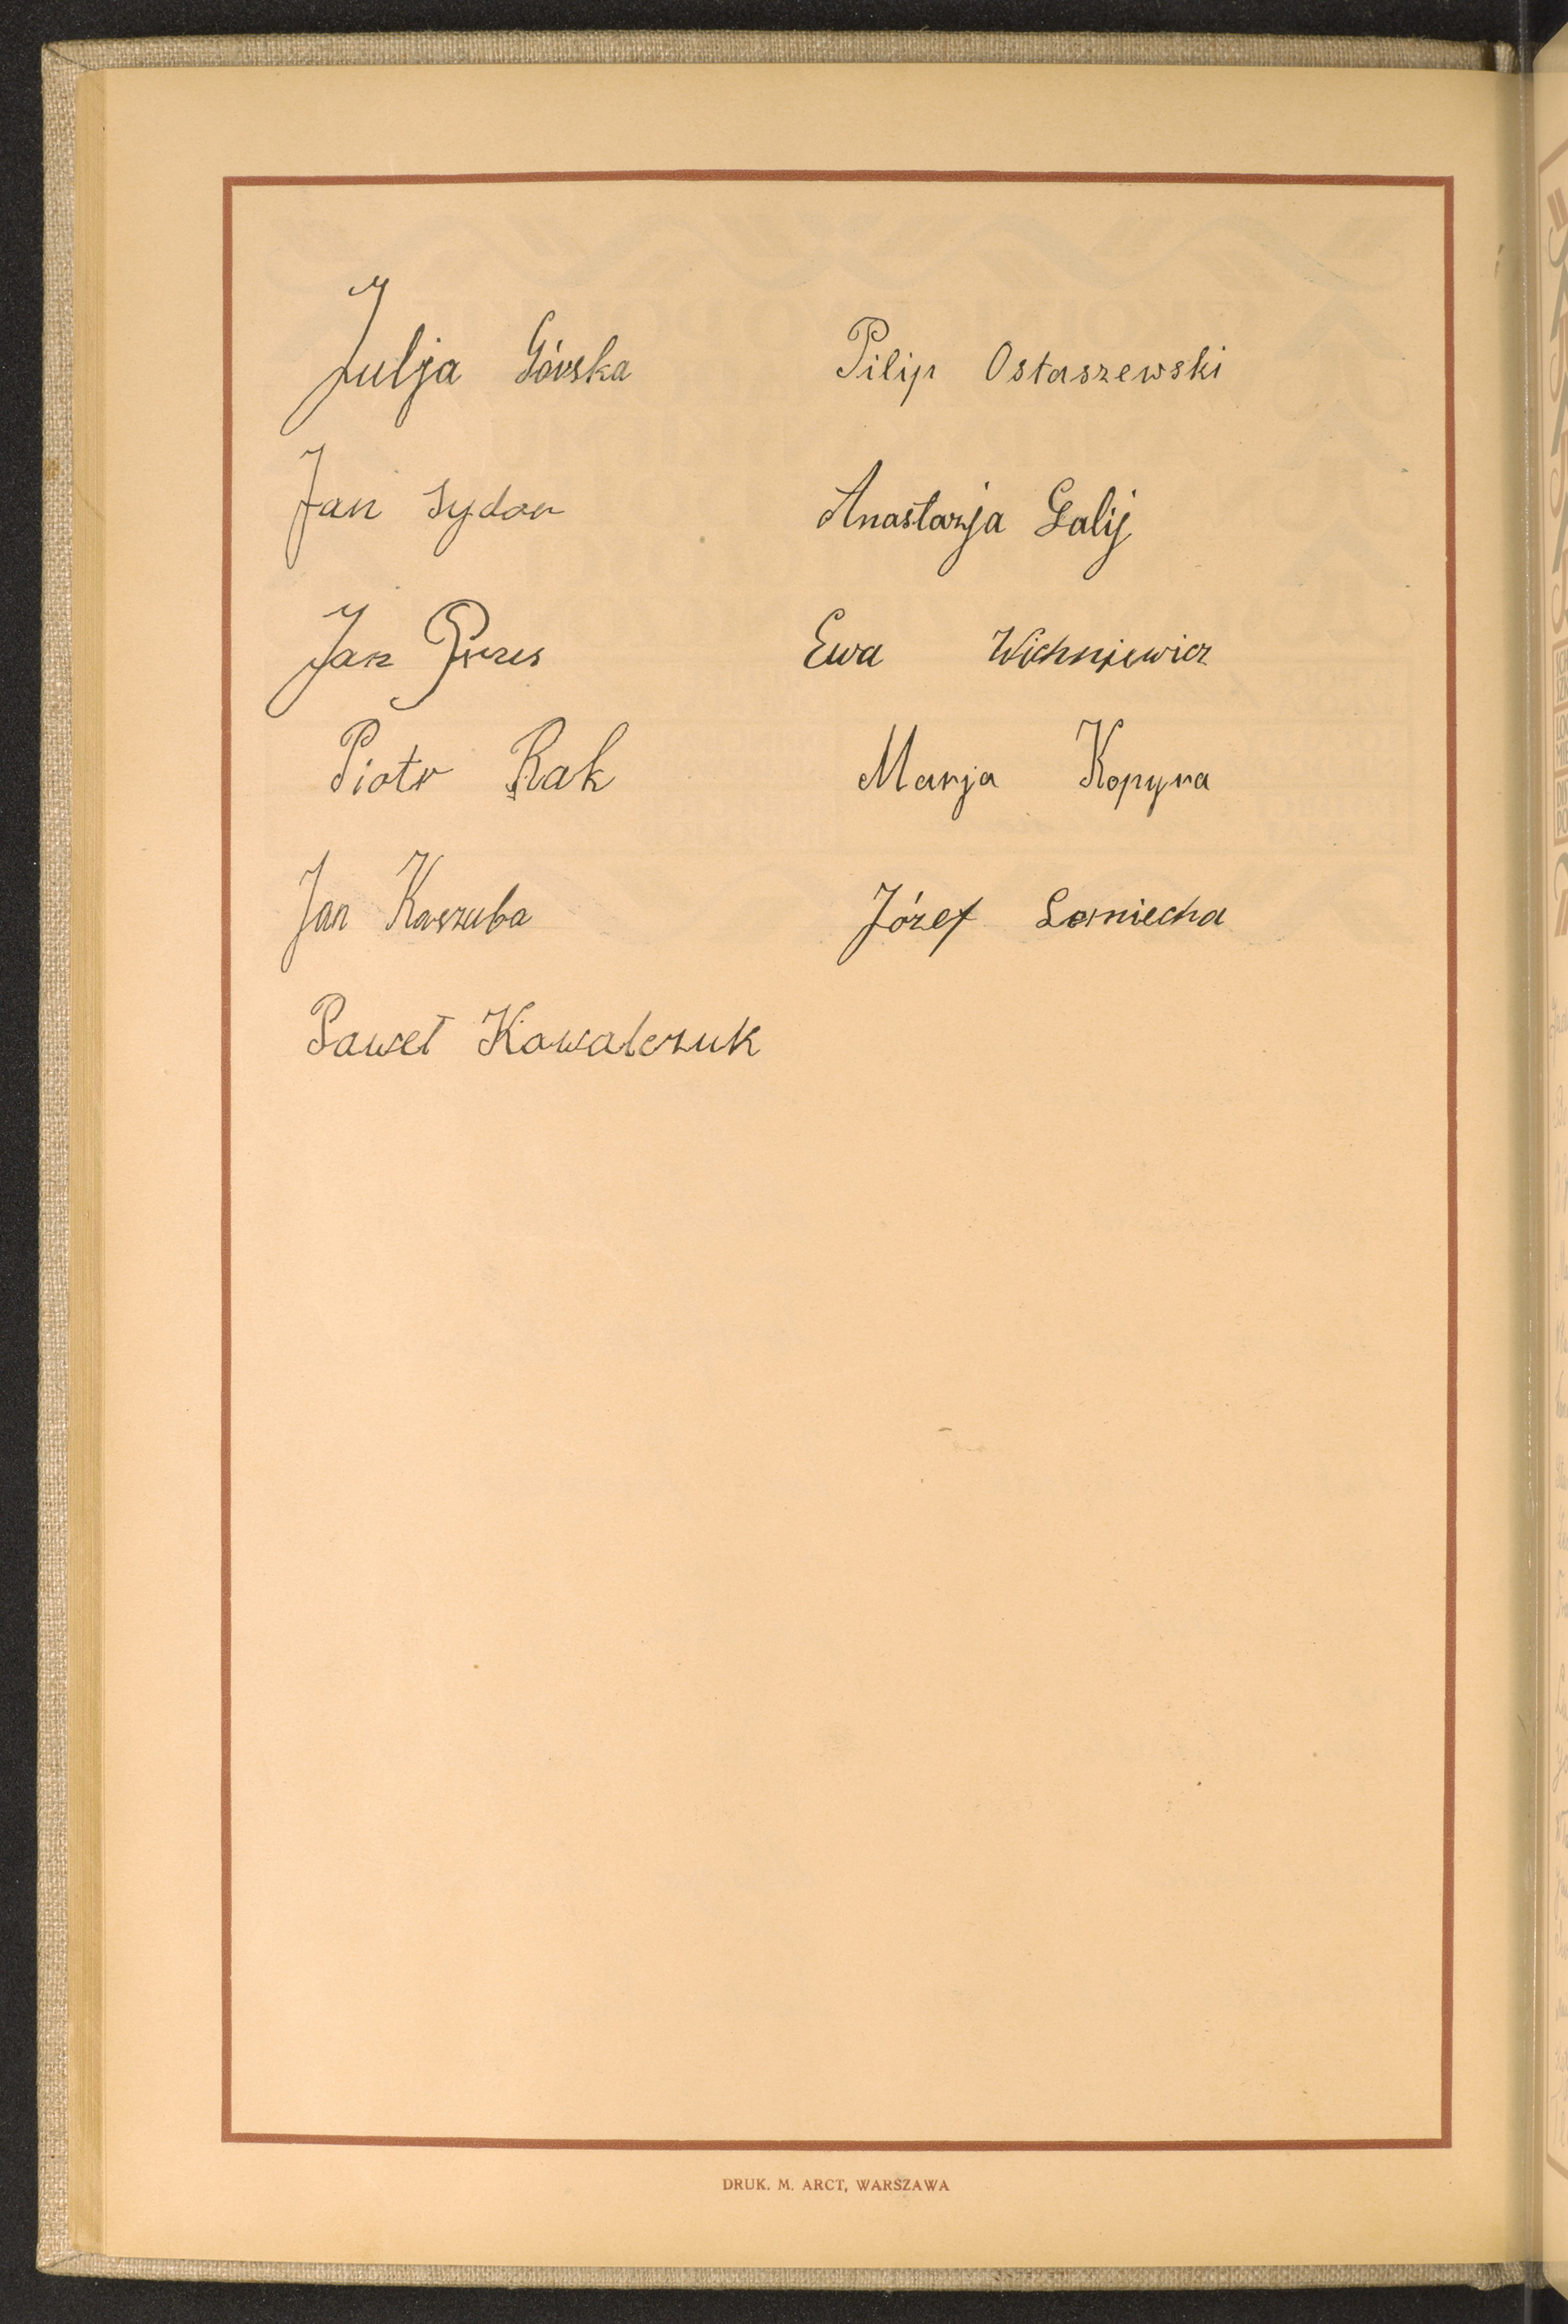 Julja Górska
Jan Sydor
Jan
Piotr Rak
Jan Kaszuba
Paweł Kowalczuk
Pilip Ostaszewski
Anastazja Galij
Ewa Wichniewicz
Marja Kopyra
Józef
DRUK. M. ARCT, WARSZAWA